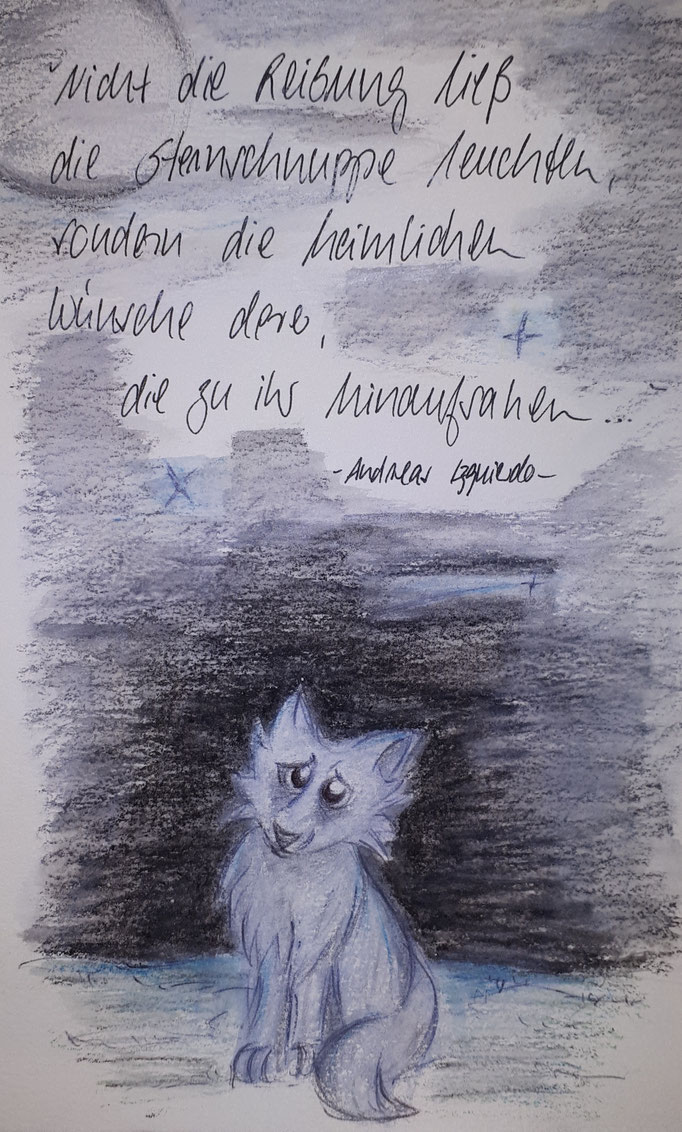 Nicht die Reibung ließ
die Sternschnuppe leuchten,
sondern die heimlichen
Wünsche derer,
die zu ihr hinaufsahen...
-Andreas Izquierdo-